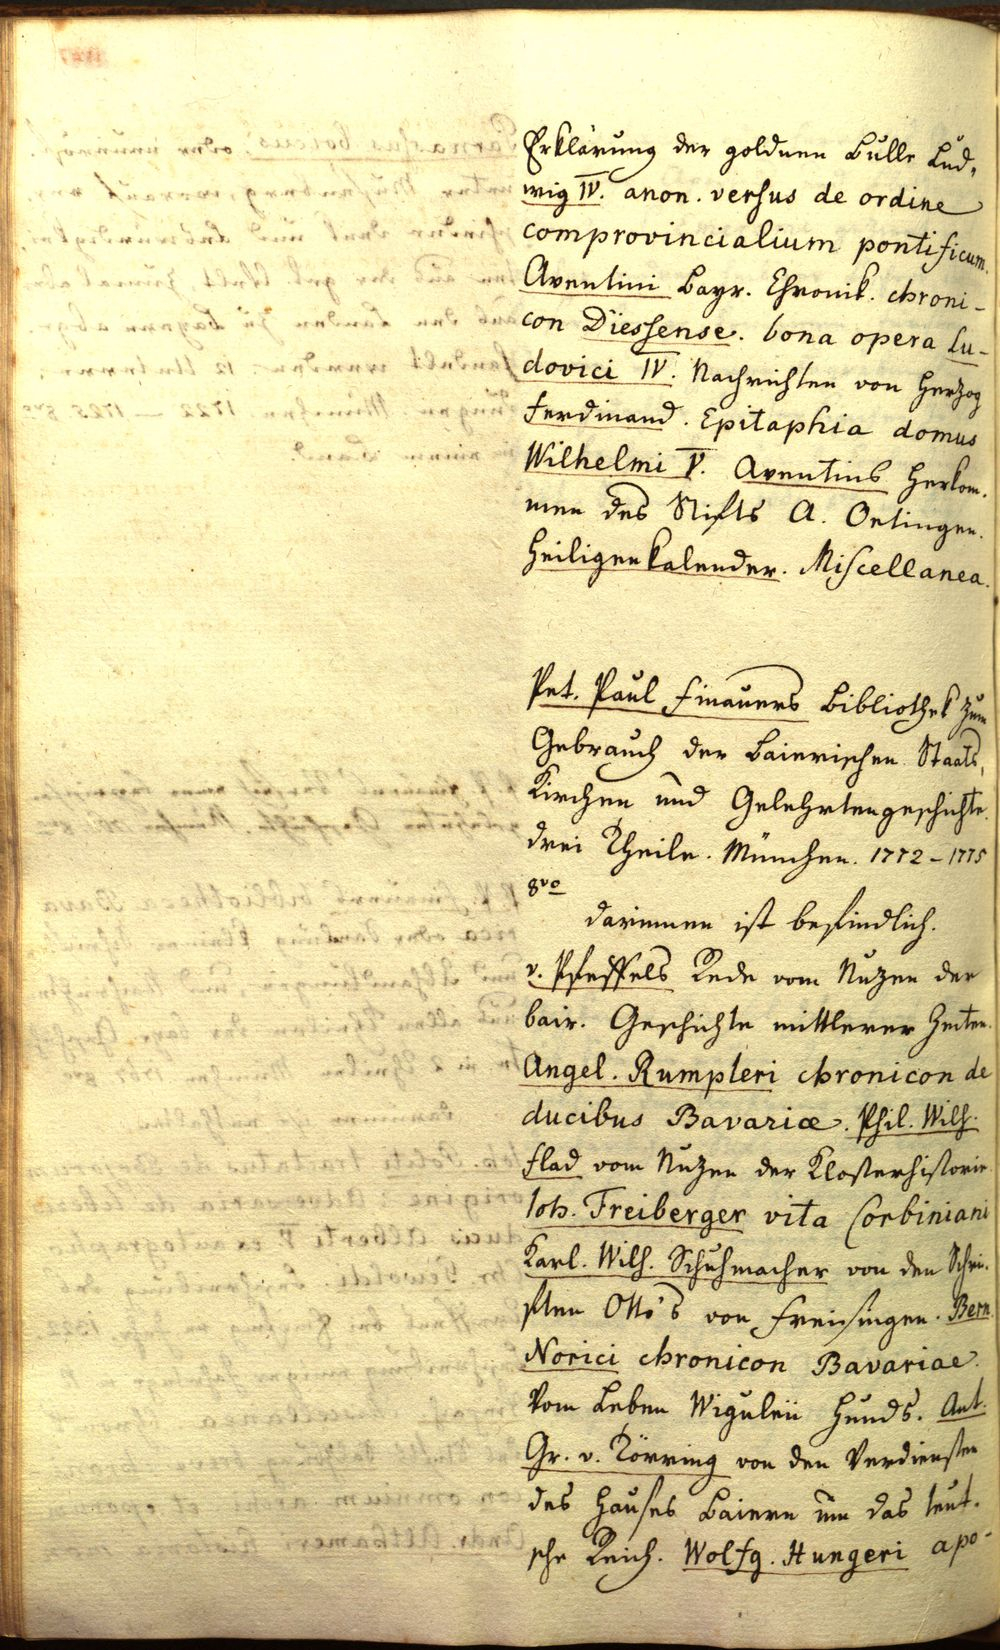 Erklärung der goldnen Bulle Lud,
wig IV. anon. versus de ordine
comprovincialium pontificum.
Aventini Bayr. Chronik. chroni-
con Diessense. bona opera Lu-
dovici IV. Nachrichten von Herzog
Ferdinand. Epitaphia domus
Wilhelmi V. Aventins Herkom-
men des Stifts A. Oetingen.
Heiligenkalender. Miscellanea.
Pet. Paul Finauers Bibliothek zum
Gebrauch der Baierischen Staats,
Kirchen und Gelehrtengeschichte.
drei Theile. München. 1772 - 1775
8vo
darinnen ist befindlich.
v. Pfeffels Rede vom Nuzen der
bair. Geschichte mittlerer Zeiten.
Angel. Rumpleri chronicon de
ducibus Bavariæ. Phil. Wilh.
Flad vom Nuzen der Klosterhistorie.
Ioh. Freiberger vita Corbiniani
Karl. Wilh. Schuhmacher von den Schri-
ften Otto's von Freisingen. Bern.
Norici chronicon Bavariae.
Vom Leben Wiguleii Hunds. Ant.
Gr. v. Törring von den Verdiensten
des Hauses Baiern um das teut-
sche Reich. Wolfg. Hungeri apo-